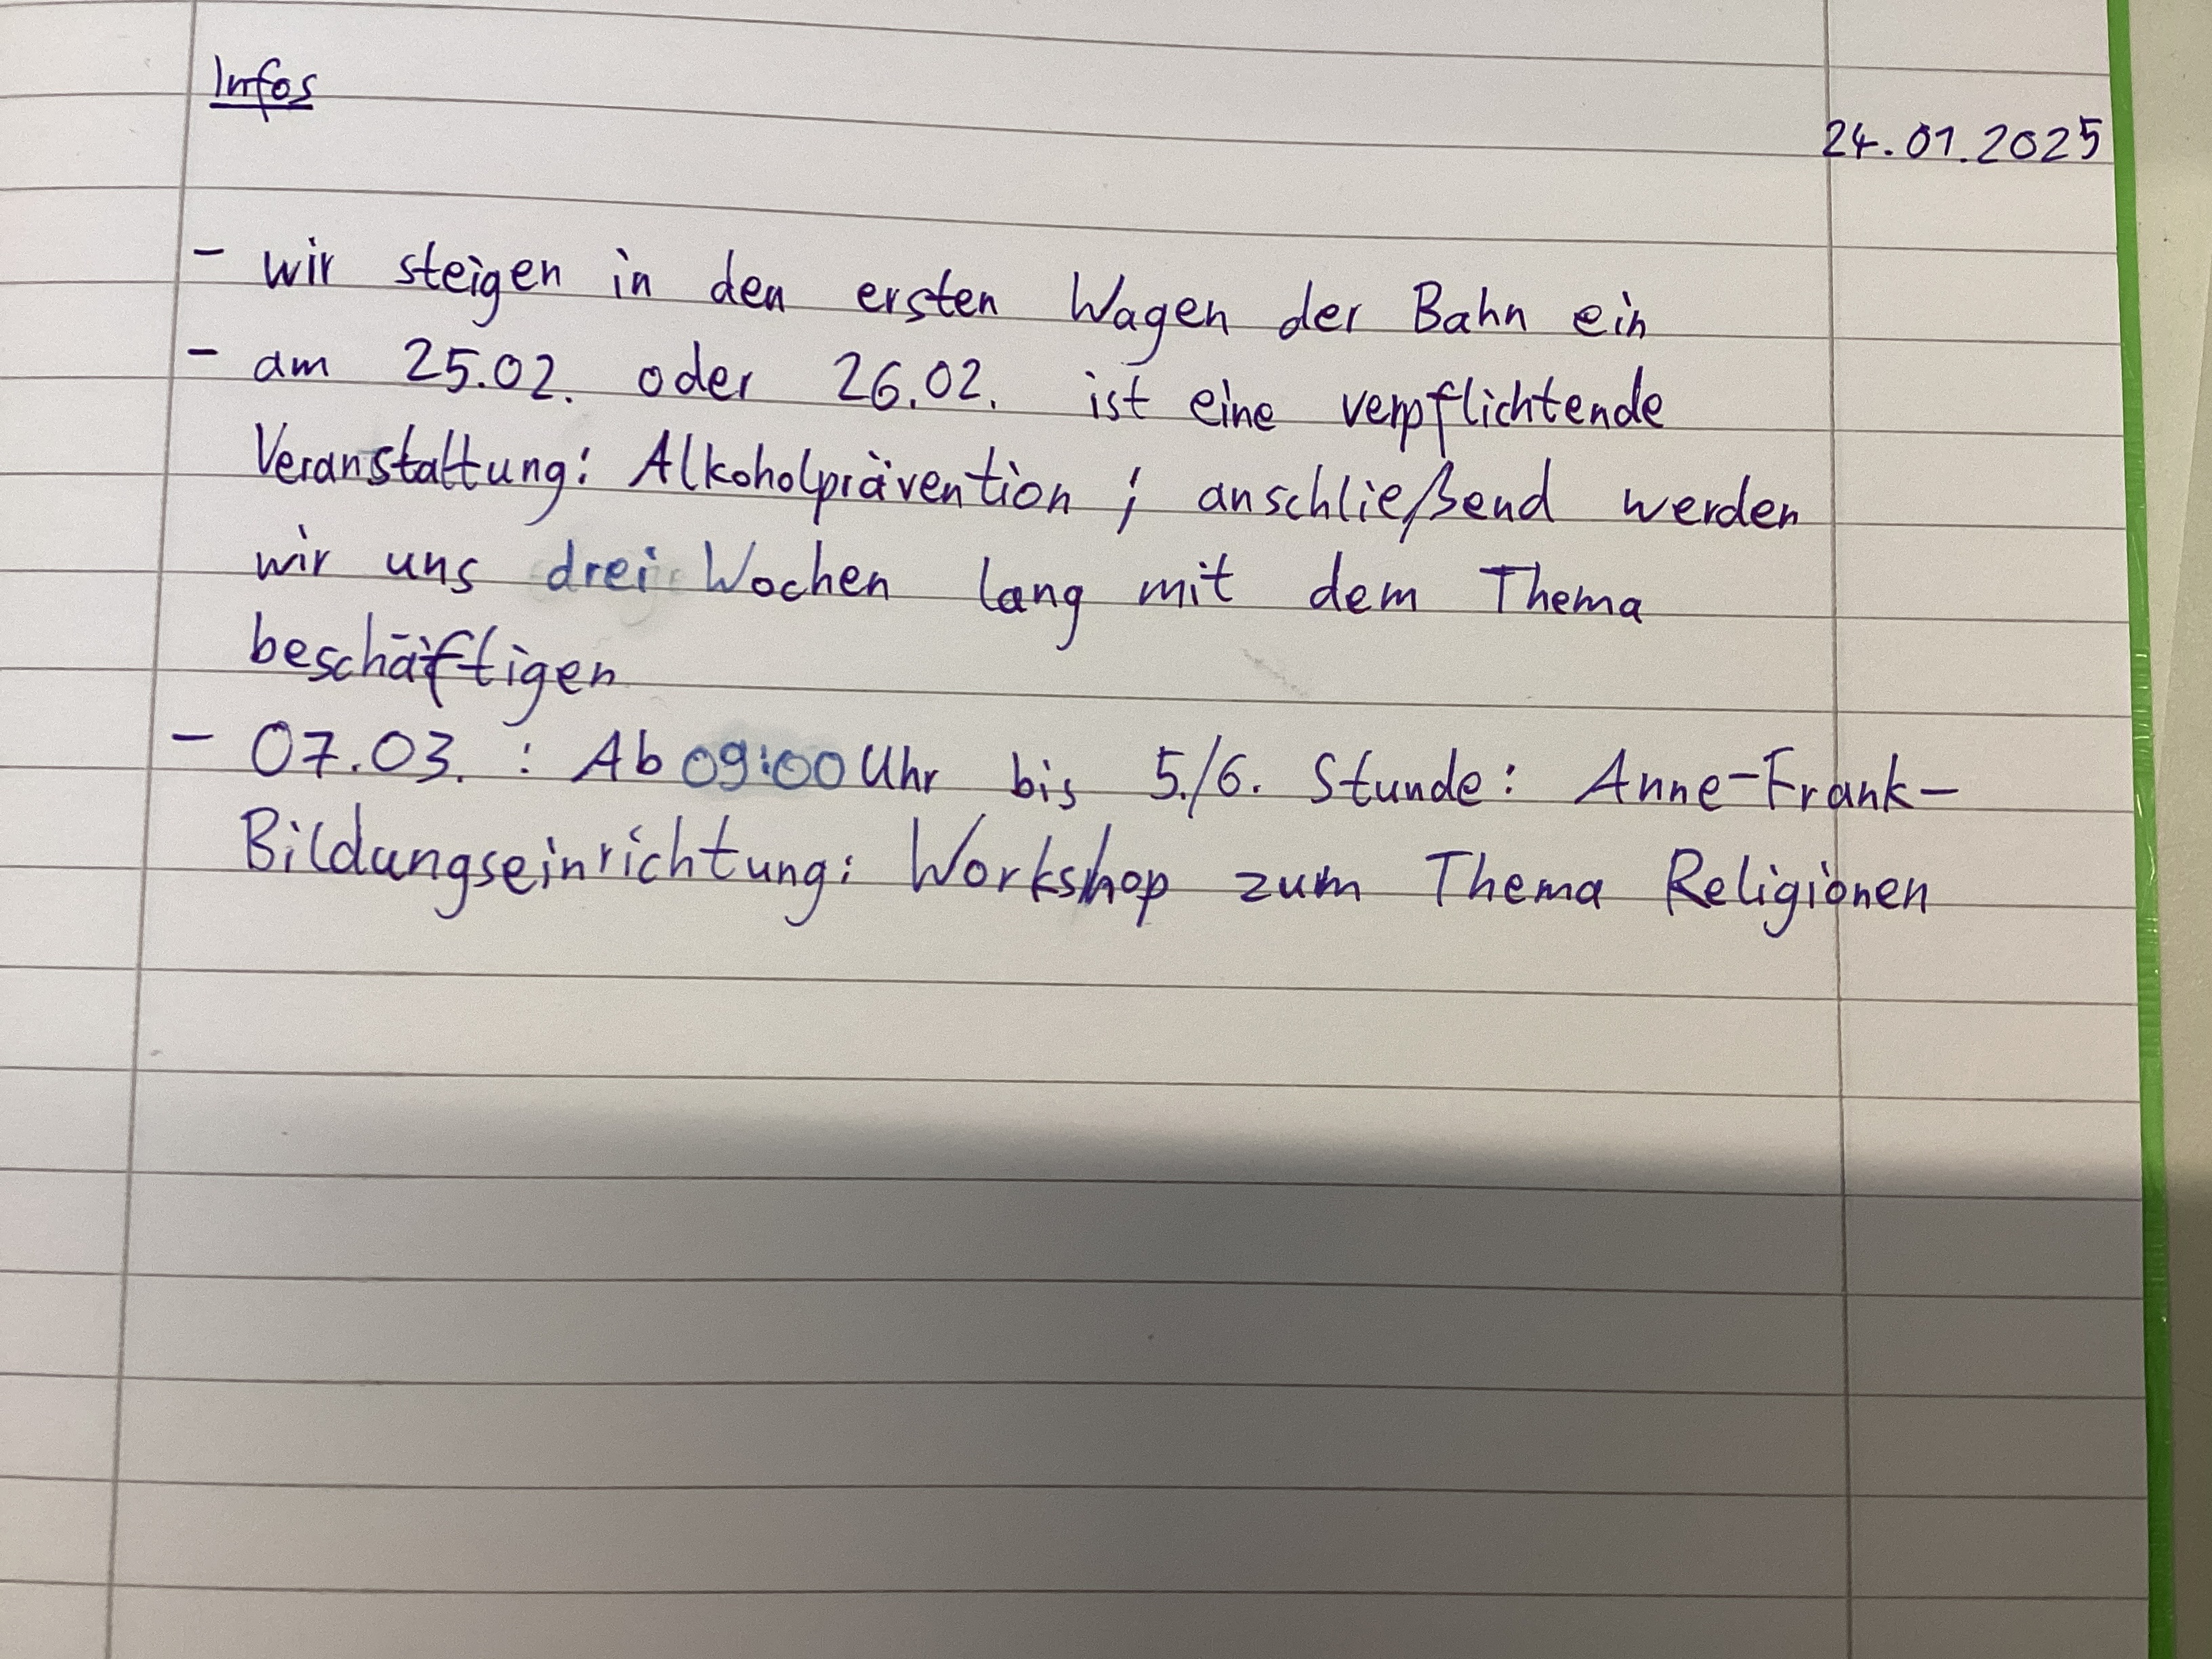 Infos
24.01.2025
- wir steigen in den ersten Wagen der Bahn ein
- am 25.02. oder 26.02. ist eine verpflichtende
Veranstaltung: Alkoholprävention ; anschließend werden
wir uns drei Wochen lang mit dem Thema
beschäftigen
- 07.03. : Ab 09:00 Uhr bis 5./6. Stunde: Anne-Frank-
Bildungseinrichtung: Workshop zum Thema Religionen